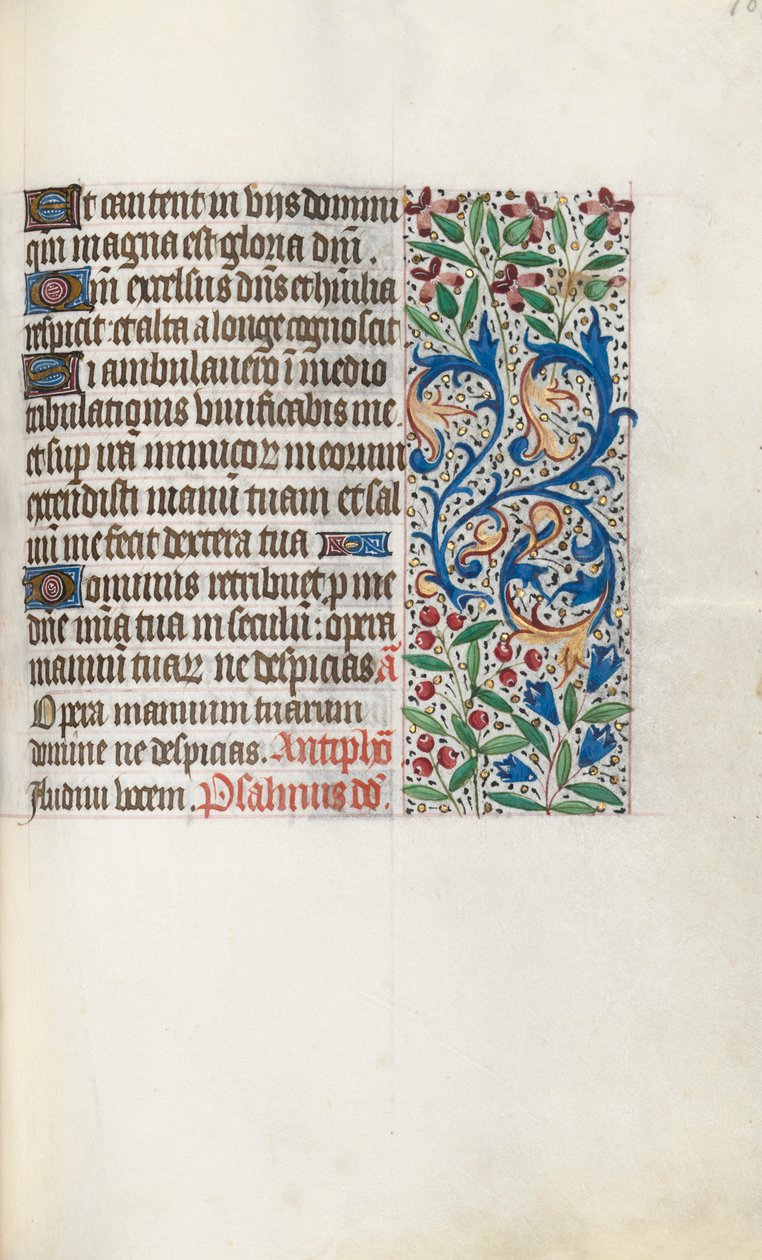 10
Et cantent in viis domini
qm magna est gloria dni.
Qm excelsus dns et humilia
respicit et alta a longe cognoscit
Si ambulavero i medio
tribulationis vivificabis me.
et sup irā inimicoꝝ meorum
extendisti manū tuam et sal
uū me fecit dextera tua
Dominus retribuet p me
dne mīa tua in seculū: opera
manuū tuaꝝ ne despicias. ā
Opera manuum tuarum
domine ne despicias. Antiphō
Audivi vocem. Psalmus dd.